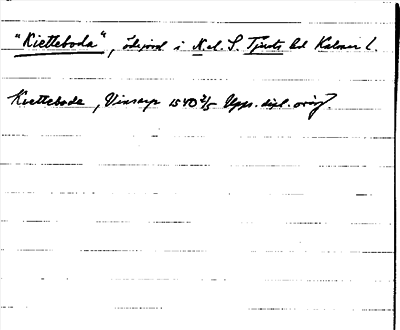 "Kietteboda", ödejord i N el. S. Tjusts hd Kalmar l.
Kietteboda, Vinsarp 1540 2/5 Upps. dipl. orig.